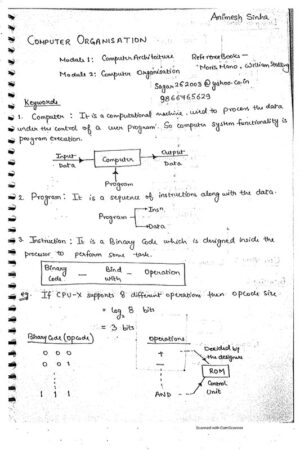 Animesh Sinha
COMPUTER ORGANISATION
Module 1: Computer Architecture
Reference Books -
Module 2: Computer Organisation
Morris Mano, William Stalling
Sagar252003@yahoo.co.in
9866465629
Keywords
1. Computer: It is a computational machine, used to process the data
under the control of a user program. So computer system functionality is
program execution.
Input Data
Computer
Output Data
Program
2. Program: It is a sequence of instructions along with the data.
Program
Insn
Data
3. Instruction: It is a Binary Code which is designed inside the
processor to perform some task.
Binary Code - Bind With - Operation
eg. If CPU-X supports 8 different operations then opcode size
= log2 8 bits
= 3 bits
Binary Code (Opcode)
Operations
0 0 0
+
Decided by the designer
0 0 1
-
ROM
Control Unit
1 1 1
AND
Scanned with CamScanner